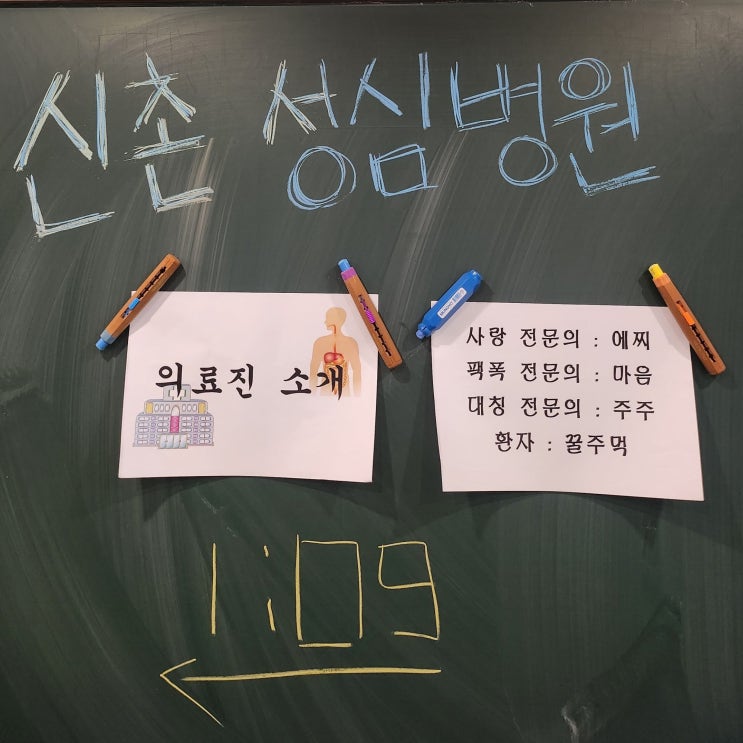 신촌 성심병원
의료진 소개
사랑 전문의 : 에찌
팩폭 전문의 : 마음
대칭 전문의 : 주주
환자 : 꿀주먹
1:09